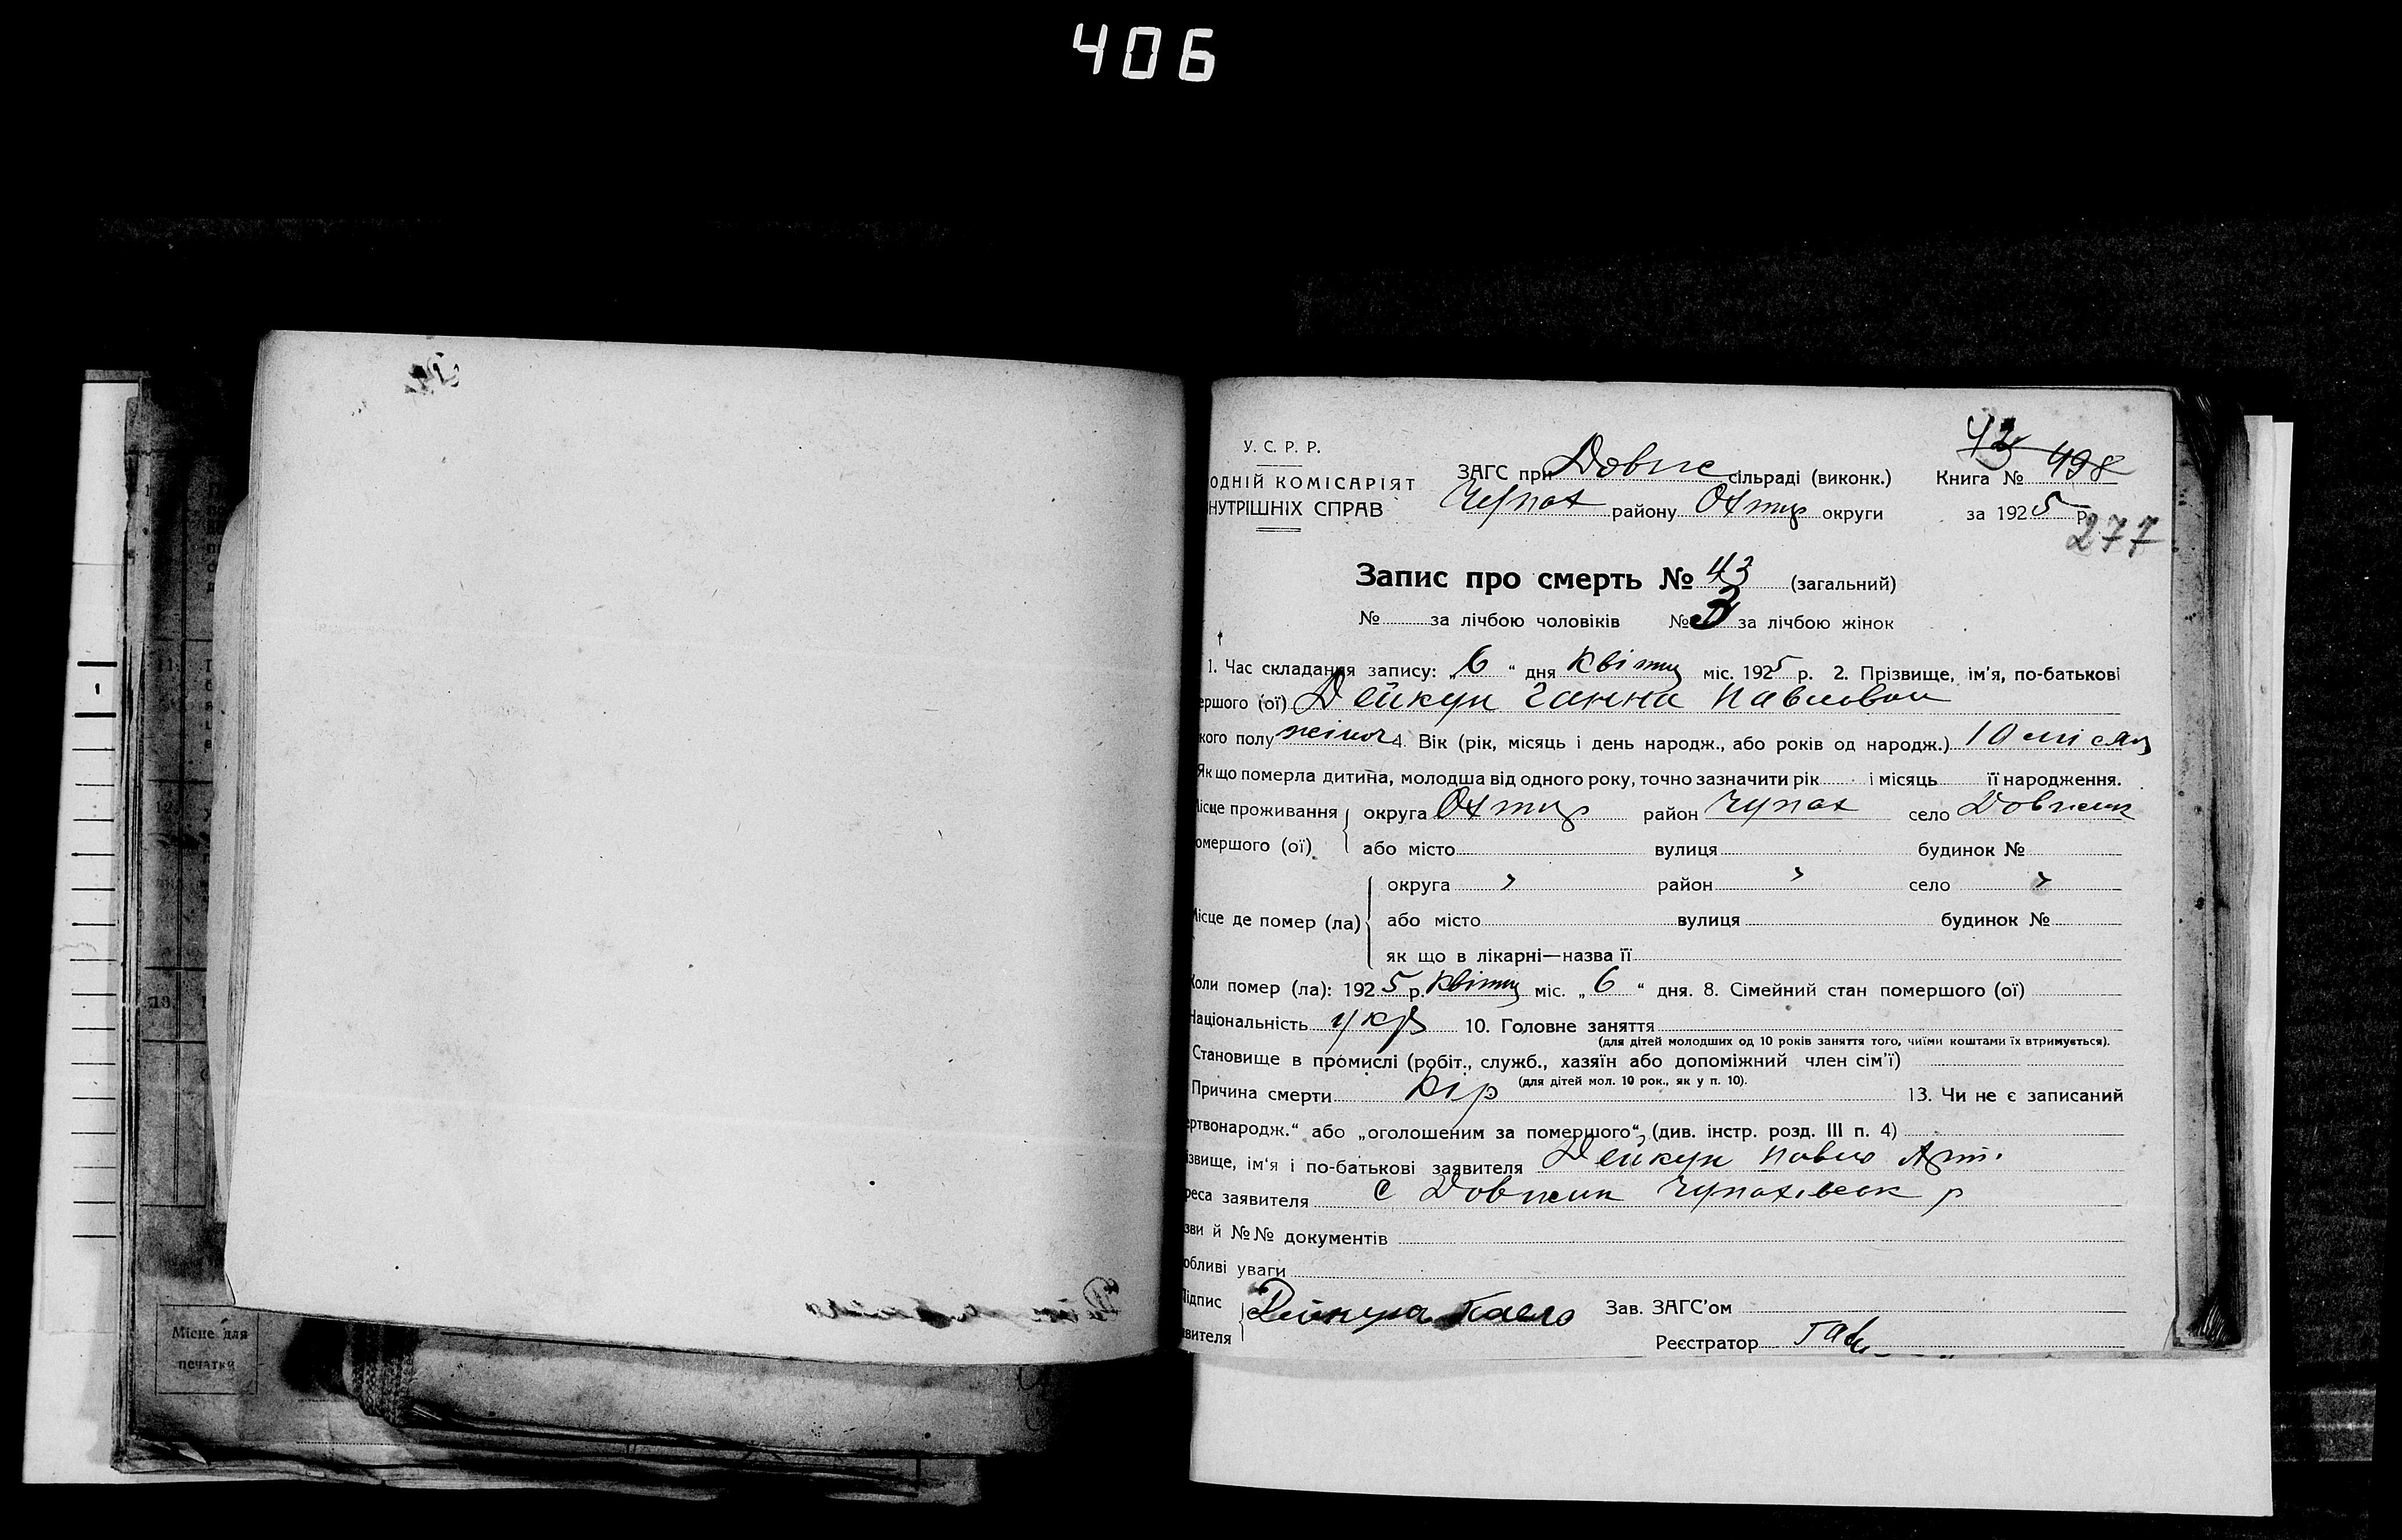 406
У. С. Р. Р.
ОДНІЙ КОМІСАРІЯТ
НУТРІШНІХ СПРАВ
ЗАГС при Довж сільраді (виконк.)
Чупах району Охтир округи
43
Книга № 498
за 1925 р.
277
Запис про смерть № 43 (загальний)
№ за лічбою чоловіків № за лічбою жінок
1. Час складання запису: „6“ дня Квітня міс. 1925 р. 2. Прізвище, ім'я, по-батькові
ершого (ої) Дейкун Ганна Павловн
кого полу жіноч 4. Вік (рік, місяць і день народж., або років од народж.) 10 місяц
Як що померла дитина, молодша від одного року, точно зазначити рік і місяць її народження.
ісце проживання округа Охтир район Чупах село Довжик
омершого (ої) або місто вулиця будинок №
округа " район " село "
Місце де помер (ла) або місто вулиця будинок №
як що в лікарні—назва її
Коли помер (ла): 1925 р. Квітня міс. „6“ дня. 8. Сімейний стан помершого (ої)
Національність укр 10. Головне заняття
(для дітей молодших од 10 років заняття того, чиїми коштами їх втримується).
Становище в промислі (робіт., служб., хазяїн або допоміжний член сім'ї)
(для дітей мол. 10 рок., як у п. 10).
Причина смерти Кір 13. Чи не є записаний
ертвонародж.“ або „оголошеним за помершого“, (див. інстр. розд. III п. 4)
ізвище, ім'я і по-батькові заявителя Дейкун Павло Арт.
реса заявителя с Довжик Чупахівськ р
зви й №№ документів
обливі уваги
Підпис
явителя Дейкун Павло Зав. ЗАГС'ом
Реєстратор
Місце для
печатки